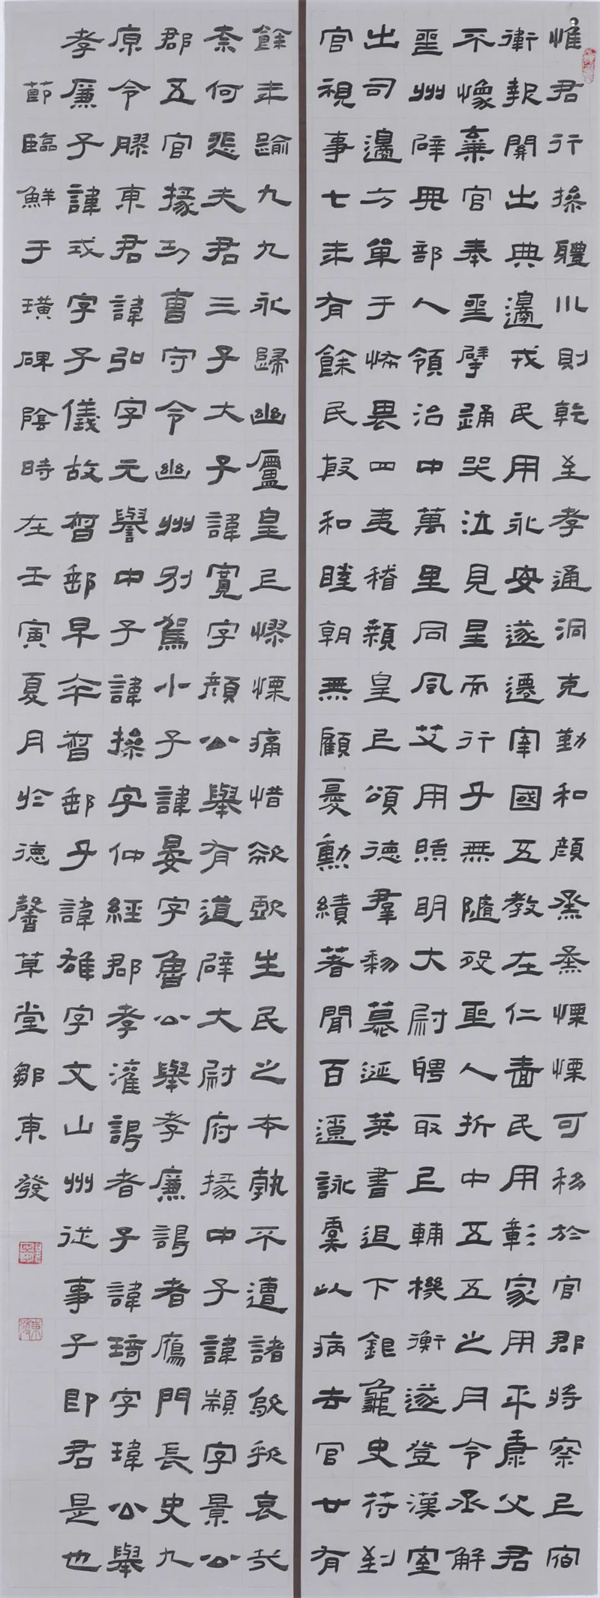 惟君行操體川則乾至孝通洞克勤和顏烝烝慄慄可移於官郡將察㠯宿
衛報關出典邊戎民用永安遂遷宰國五教在仁嗇民用彰家用平康父君
不懷棄官奉喪擗踊哭泣見星而行于無隨歿聖人折中五五之月令丞解
喪州辟典部入領治中萬里同風艾用照明大尉聘取㠯輔機衡遂登漢室
出司邊方單于怖畏四夷稽顙皇㠯頌德群黎慕涎英書追下銀龜史符到
官視事七年有餘民殷和睦朝無顧憂勳績著聞百遼詠虞以病去官廿有
餘年踰九九永歸幽廬皇㠯憀慄痛惜欷歔生民之本孰不遭諸哀哉
奈何悲夫君三子大子諱寬字顏公舉有道辟大尉府掾中子諱潁字景公
郡五官掾功曹守令幽州別駕小子諱晏字魯公舉孝廉謁者鴈門長史九
原令膠東君諱弘字元譽中子諱操字仲經郡孝灌謁者子諱琦字瑋公舉
孝廉子諱式字子儀故督郵早卒督郵子諱雄字文山州從事子即君是也
節臨鮮于璜碑陰時在壬寅夏月於德馨草堂鄒東發